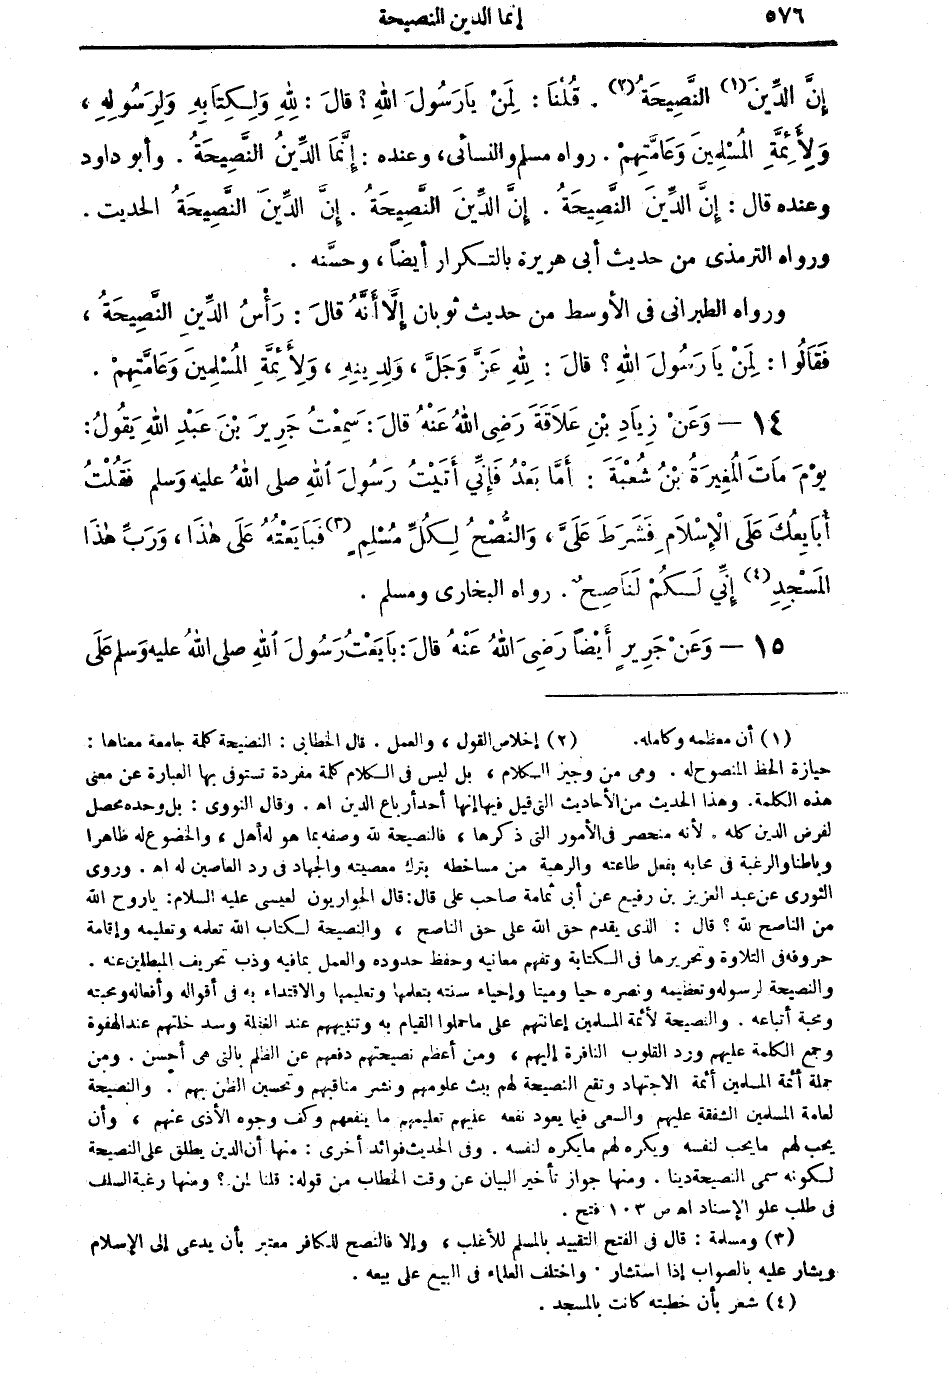 ٥٧٦
إنما الدين النصيحة
إِنَّ الدِّينَ (١) النَّصِيحَةُ (٢) . قُلْنَا : لِمَنْ يَا رَسُولَ اللهِ ؟ قَالَ : لِلهِ وَلِكِتَابِهِ وَلِرَسُولِهِ ،
وَلِأَئِمَّةِ الْمُسْلِمِينَ وَعَامَّتِهِمْ . رواه مسلم والنسائى، وعنده : إِنَّمَا الدِّينُ النَّصِيحَةُ . وأبو داود
وعنده قال : إِنَّ الدِّينَ النَّصِيحَةُ . إِنَّ الدِّينَ النَّصِيحَةُ . إِنَّ الدِّينَ النَّصِيحَةُ الحديث .
ورواه الترمذى من حديث أبى هريرة بالتكرار أيضاً ، وحسَّنه .
ورواه الطبرانى فى الأوسط من حديث ثوبان إِلَّا أَنَّهُ قَالَ : رَأْسُ الدِّينِ النَّصِيحَةُ ،
فَقَالُوا : لِمَنْ يَا رَسُولَ اللهِ ؟ قَالَ : لِلهِ عَزَّ وَجَلَّ ، وَلِدِينِهِ ، وَلِأَئِمَّةِ الْمُسْلِمِينَ وَعَامَّتِهِمْ .
١٤ — وَعَنْ زِيَادِ بْنِ عَلَاقَةَ رَضِىَ اللهُ عَنْهُ قَالَ : سَمِعْتُ جَرِيرَ بْنَ عَبْدِ اللهِ يَقُولُ :
يَوْمَ مَاتَ الْمُغِيرَةُ بْنُ شُعْبَةَ : أَمَّا بَعْدُ فَإِنِّي أَتَيْتُ رَسُولَ اللهِ صلى اللهُ عليه وَسلم فَقُلْتُ
أُبَايِعُكَ عَلَى الْإِسْلَامِ فَشَرَطَ عَلَىَّ ، وَالنُّصْحُ لِكُلِّ مُسْلِمٍ (٣) فَبَايَعْتُهُ عَلَى هٰذَا ، وَرَبِّ هٰذَا
الْمَسْجِدِ (٤) إِنِّي لَكُمْ لَنَاصِحٌ . رواه البخارى ومسلم .
١٥ — وَعَنْ جَرِيرٍ أَيْضاً رَضِىَ اللهُ عَنْهُ قَالَ : بَايَعْتُ رَسُولَ اللهِ صلى اللهُ عليه وَسلم عَلَى
(١) أن معظمه وكامله. (٢) إخلاص القول ، والعمل . قال الخطابى : النصيحة كلمة جامعة معناها :
حيازة الحظ المنصوح له . وهى من وجيز الكلام ، بل ليس فى الكلام كلمة مفردة تستوفى بها العبارة عن معنى
هذه الكلمة. وهذا الحديث من الأحاديث التى قيل فيها إنها أحد أرباع الدين اه . وقال النووى : بل وحده محصل
لغرض الدين كله . لأنه منحصر فى الأمور التى ذكرها ، فالنصيحة لله وصفه بما هو له أهل ، والخضوع له ظاهرا
وباطنا والرغبة فى محابه بفعل طاعته والرهبة من مساخطه بترك معصيته والجهاد فى رد العاصين له اه . وروى
الثورى عن عبد العزيز بن رفيع عن أبى ثمامة صاحب على قال: قال الحواريون لعيسى عليه السلام: ياروح الله
من الناصح لله ؟ قال : الذى يقدم حق الله على حق الناصح ، والنصيحة لكتاب الله تعلمه وتعليمه وإقامة
حروفه فى التلاوة وتحريرها فى الكتابة وتفهم معانيه وحفظ حدوده والعمل بما فيه وذب تحريف المبطلين عنه .
والنصيحة لرسوله وتعظيمه ونصره حيا وميتا وإحياء سنته بتعلمها وتعليمها والاقتداء به فى أقواله وأفعاله ومحبته
ومحبة أتباعه . والنصيحة لأئمة المسلمين إعانتهم على ماحملوا القيام به وتنبيههم عند الغفلة وسد خلتهم عند الهفوة
وجمع الكلمة عليهم ورد القلوب النافرة إليهم ، ومن أعظم نصيحتهم دفعهم عن الظلم بالتى هى أحسن . ومن
جملة أئمة المسلمين أئمة الاجتهاد وتقع النصيحة لهم ببث علومهم ونشر مناقبهم وتحسين الظن بهم . والنصيحة
لعامة المسلمين الشفقة عليهم والسعى فيما يعود نفعه عليهم تعليمهم ما ينفعهم وكف وجوه الأذى عنهم ، وأن
يحب لهم مايحب لنفسه ويكره لهم مايكره لنفسه . وفى الحديث فوائد أخرى : منها أن الدين يطلق على النصيحة
لكونه سمى النصيحة دينا . ومنها جواز تأخير البيان عن وقت الخطاب من قوله: قلنا لمن ؟ ومنها رغبة السلف
فى طلب علو الإسناد اه ص ١٠٣ فتح .
(٣) ومسلمة : قال فى الفتح التقييد بالمسلم للأغلب ، وإلا فالنصح للكافر معتبر بأن يدعى إلى الإسلام
ويشار عليه بالصواب إذا استشار . واختلف العلماء فى البيع على بيعه .
(٤) شعر بأن خطبته كانت بالمسجد .